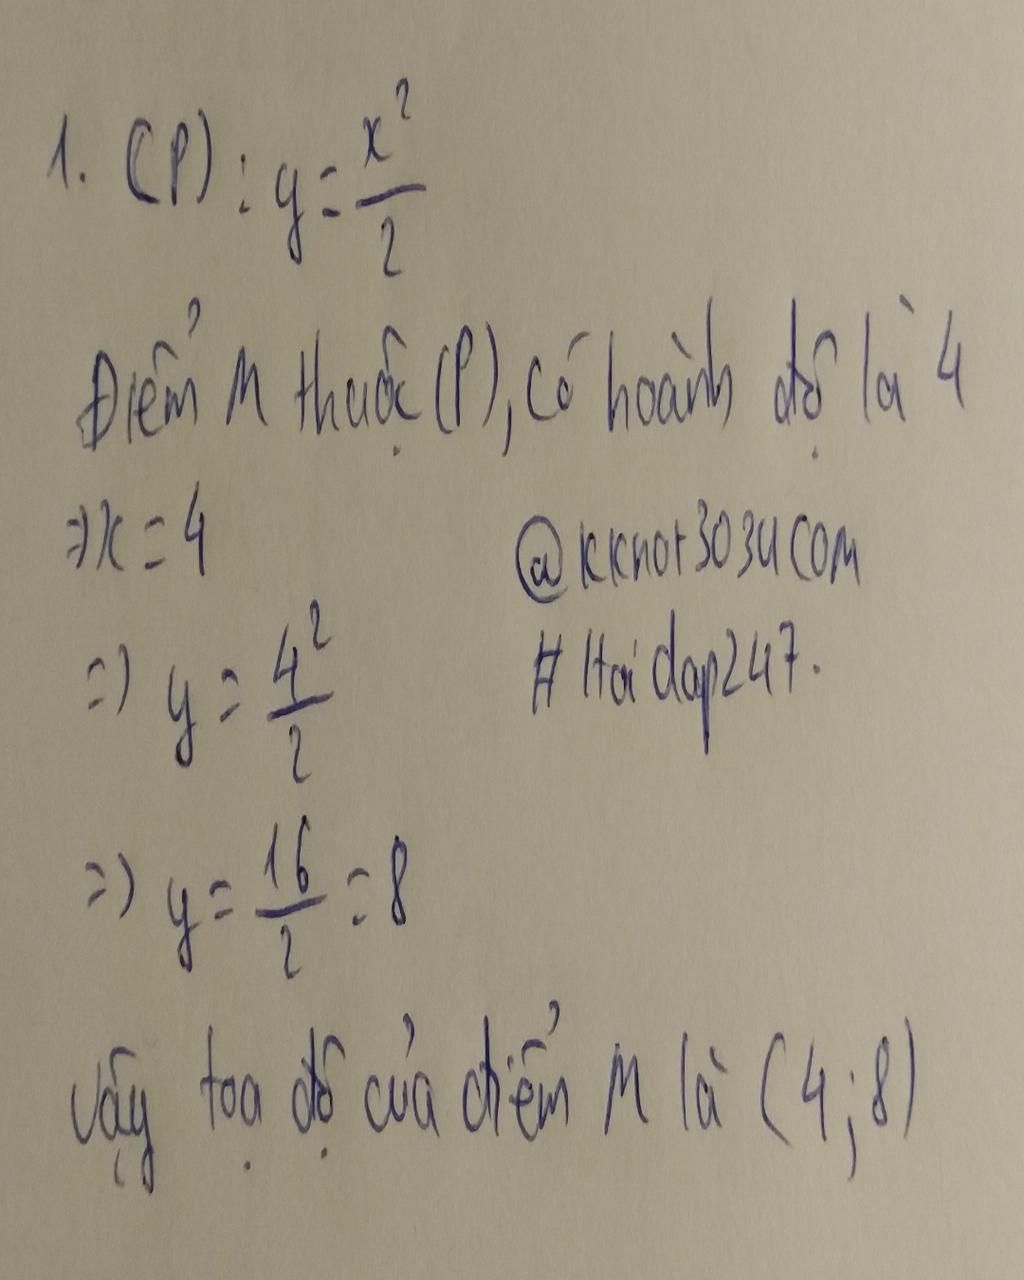 1. (P): y = x²/2
Điểm M thuộc (P), có hoành độ là 4
⇒ x = 4
@kknot3034com
⇒ y = 4²/2
#Hoidap247.
⇒ y = 16/2 = 8
Vậy tọa độ của điểm M là (4;8)